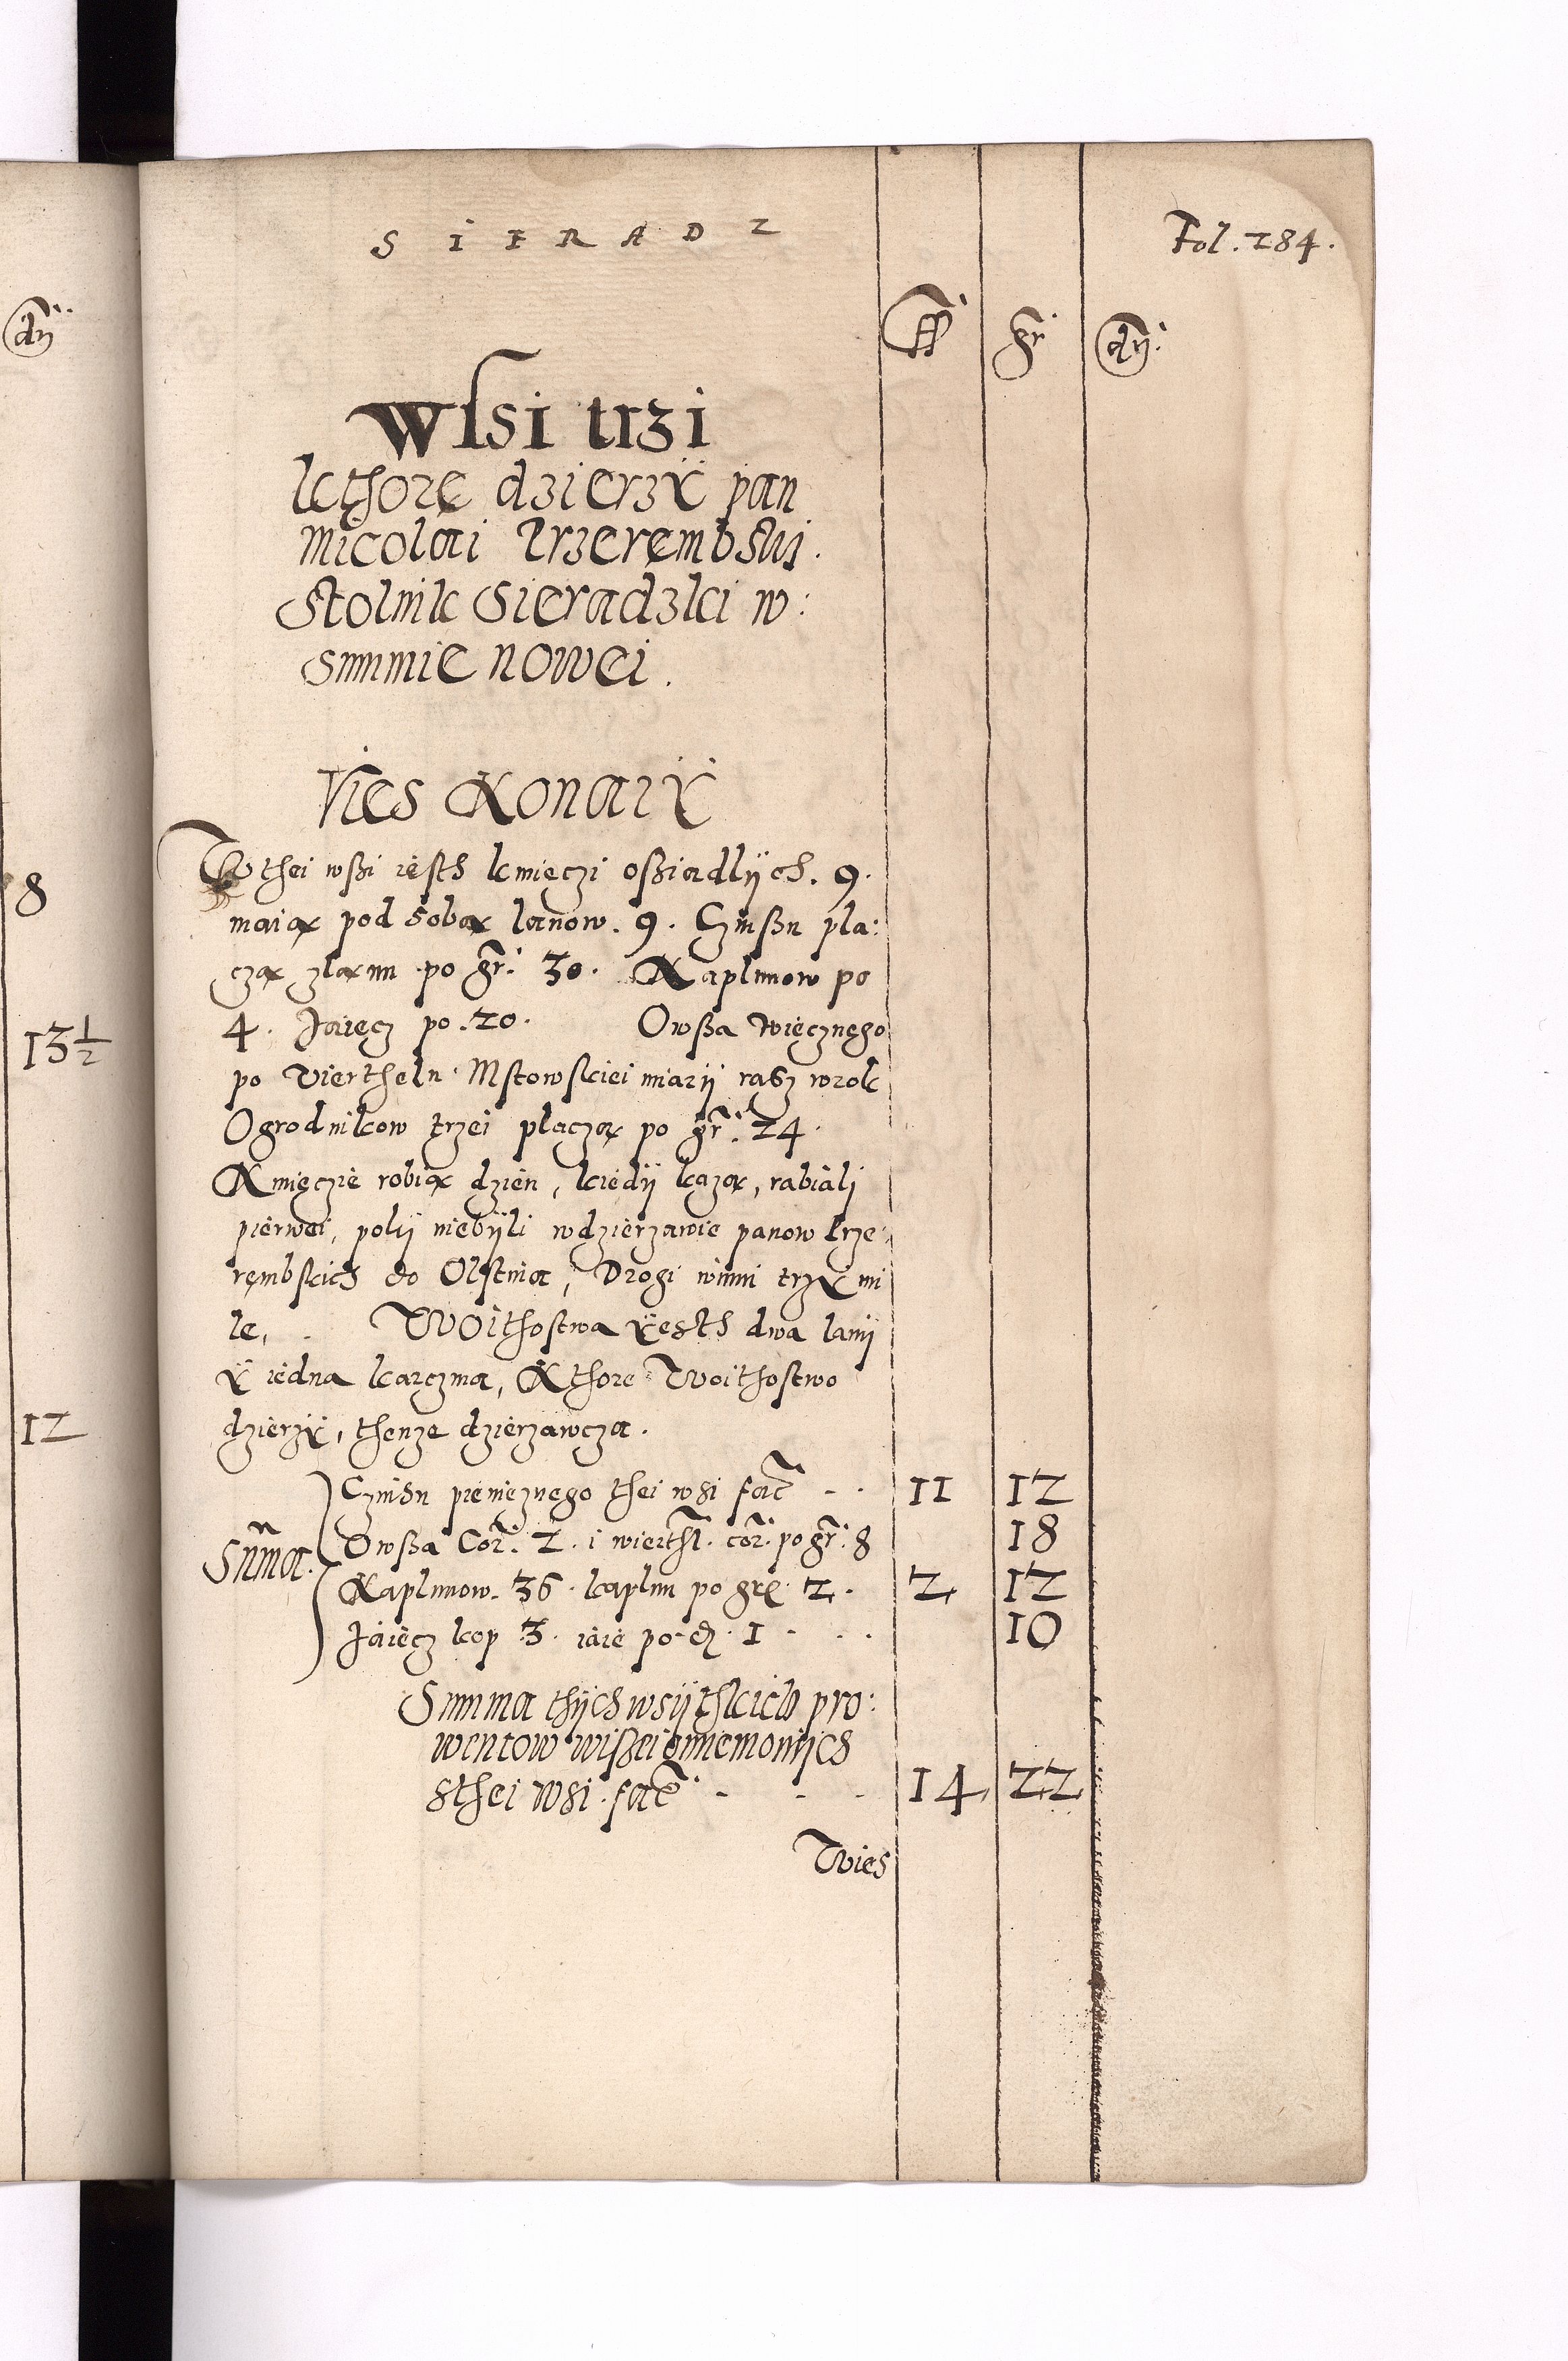 SIERADZ
Fol. 284.
fl gr. dn.
dn.
Wsi trzi
kthore dzierzÿ pan
Micolai Trzerembski.
Stolnik Sieradzki w:
summie nowei.
Vies Konarÿ
W thei wßi iesth kmięczi oßiadlÿch. 9.
maiąx pod sobąx lanow. 9. Czinßu pla:
cząx zląxnu po gr. 30. Kaplunow po
4. Jaiecz po. 20. Owßa Więcznego
po Viertheln Mstowskiei miarÿ rasz wrok
Ogrodnikow trzei placząx po gr. 24.
Kmięczie robiąx dzien, kiedÿ kąząx, rabiali
pierwei, pokÿ niebÿli wdzierzawie panow trze:
rembskich do Olstina, Drogi winni trzÿ mi
le, Woithostwa ÿesth dwa lanÿ
ÿ iedna karczma, Kthore Woithostwo
dzierzÿ, thenze dzierzawcza.
8
13½
12
Czinsu pienięznego thei wsi fac 11 12
Suma. Owßa Cor. 2. i wierth. cor. po gr. 8 18
Kaplunow. 36. kaplun po gr. 2. 2 12
Jaiecz kop 3. iaie po d. 1 10
Summa thÿch wsÿthkich pro:
wentow wißei mienionÿch
sthei wsi. fac 14 22
Wies